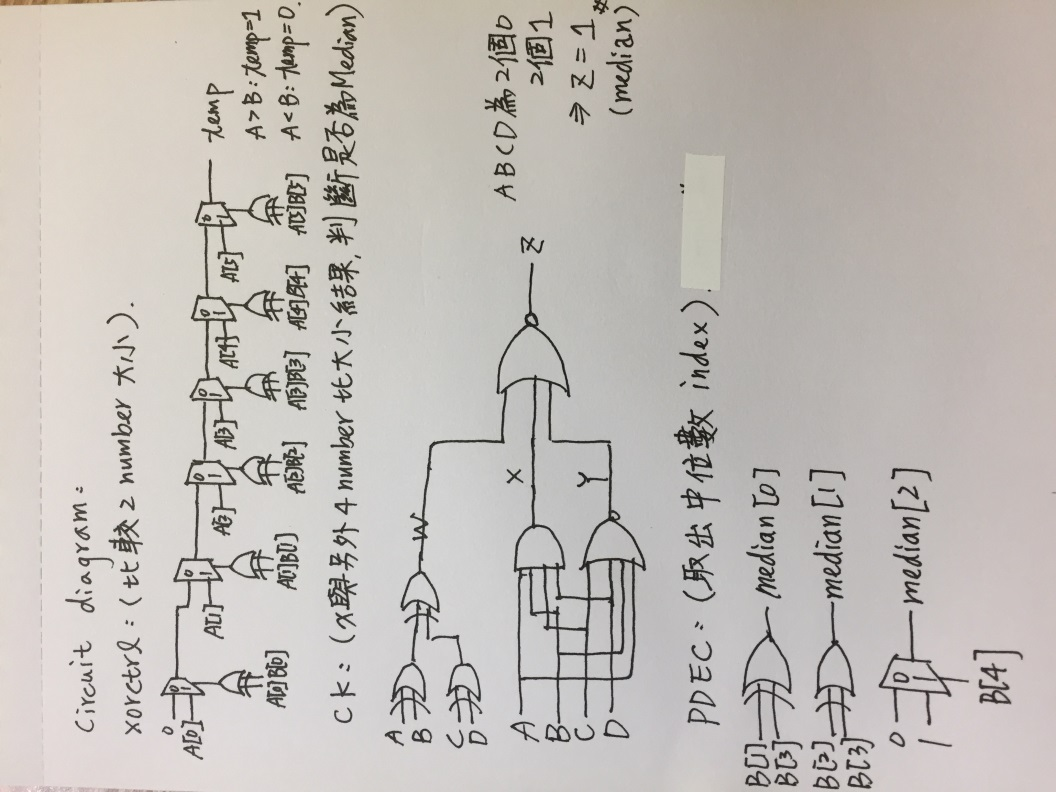 Circuit diagram:
xorctrl:(比較2 number 大小).
0
A[0]
0
1
A[0]B[0]
A[1]
0
1
A[1]B[1]
A[2]
0
1
A[2]B[2]
A[3]
0
1
A[3]B[3]
A[4]
0
1
A[4]B[4]
A[5]
0
1
A[5]B[5]
temp
A>B:temp=1
A<B:temp=0.
CK:(x與另外4 number 比大小結果,判斷是否為Median)
A
B
C
D
W
A
B
C
D
X
Y
Z
ABCD為2個0
2個1
⇒ Z=1
(median)
PDEC:(取出中位數 index).
B[1]
B[3]
median[0]
B[2]
B[3]
median[1]
0
1
0
1
median[2]
B[4]